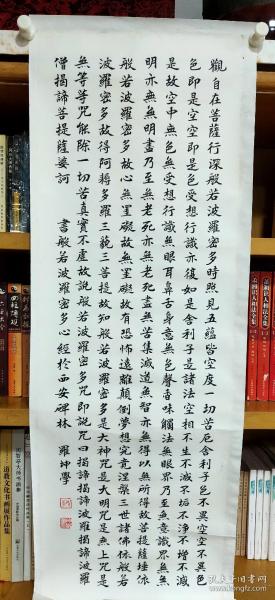 觀自在菩薩行深般若波羅密多時照見五蘊皆空度一切苦厄舍利子色不異空空不異色
色即是空空即是色受想行識亦復如是舍利子是諸法空相不生不滅不垢不淨不增不減
是故空中無色無受想行識無眼耳鼻舌身意無色聲香味觸法無眼界乃至無意識界無無
明亦無無明盡乃至無老死亦無老死盡無苦集滅道無智亦無得以無所得故菩提薩埵依
般若波羅密多故心無罣礙無罣礙故無有恐怖遠離顛倒夢想究竟涅槃三世諸佛依般若
波羅密多故得阿耨多羅三藐三菩提故知般若波羅密多是大神咒是大明咒是無上咒是
無等等咒能除一切苦真實不虛故說般若波羅密多咒即說咒曰揭諦揭諦波羅揭諦波羅
僧揭諦菩提薩婆訶
書般若波羅密多心經於西安碑林 羅坤學
四柱預測
孔夫子旧书网